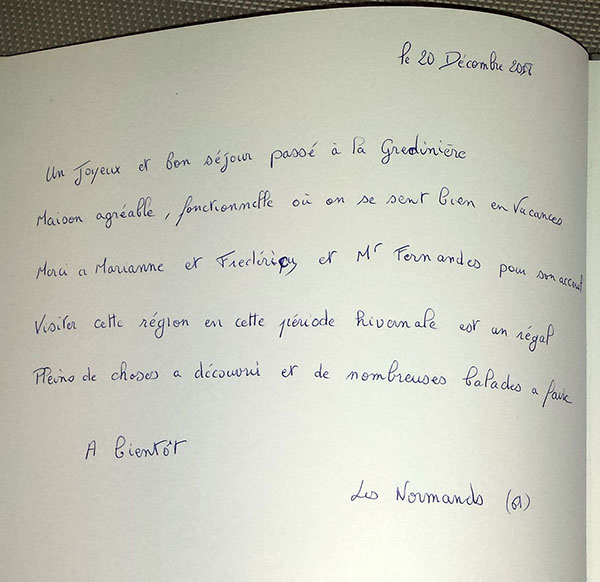 le 20 Décembre
Un Joyeux et bon séjour passé à la Gredinière
Maison agréable, fonctionnelle où on se sent bien en Vacances
Merci a Marianne et Frederic et Mr Fernandes pour son accueil
Visiter cette région en cette période hivernale est un régal
Pleins de choses a découvrir et de nombreuses balades a faire
A bientôt
Les Normands